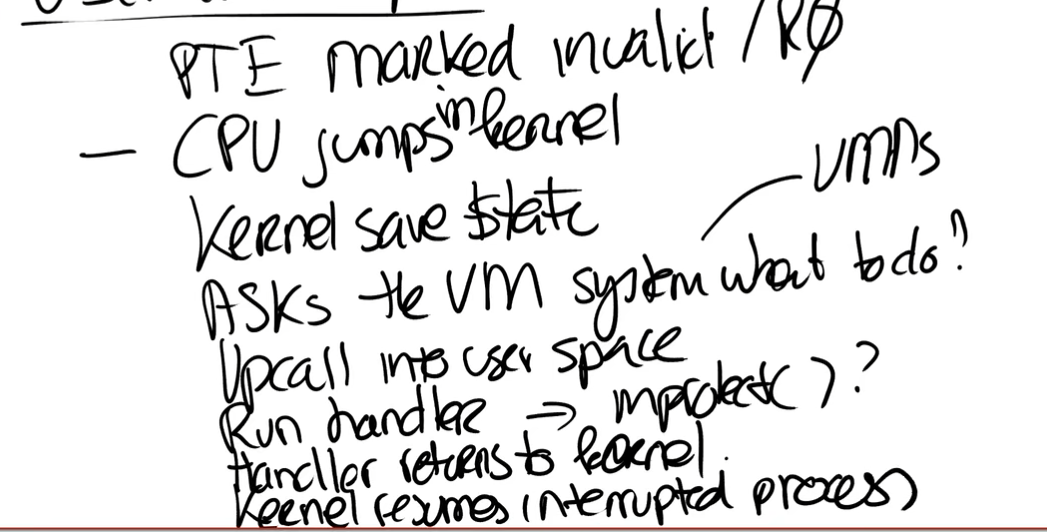 PTE marked invalid / RO
— CPU jumps in kernel
VMAs
Kernel save state
Asks the VM system what to do?
Upcall into user space
Run handler ⇒ mprotect( )?
Handler returns to kernel.
Kernel resumes interrupted process